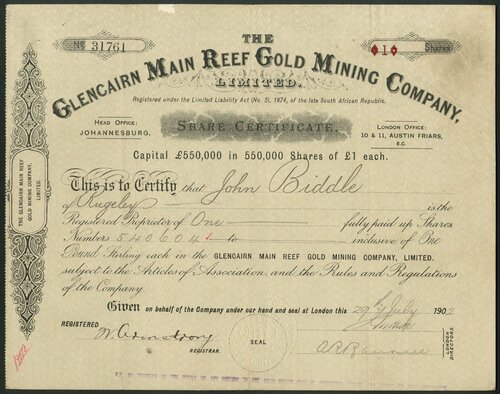 THE
GLENCAIRN MAIN REEF GOLD MINING COMPANY,
LIMITED.
No 31761
1 Shares
Registered under the Limited Liability Act (No. 5), 1874, of the late South African Republic.
HEAD OFFICE:
JOHANNESBURG.
SHARE CERTIFICATE.
LONDON OFFICE:
10 & 11, AUSTIN FRIARS,
E.C.
Capital £550,000 in 550,000 Shares of £1 each.
This is to Certify that John Biddle
of Rugeley is the
Registered Proprietor of One fully paid up Shares
Numbers 540604 to inclusive of One
Pound Sterling each in the GLENCAIRN MAIN REEF GOLD MINING COMPANY, LIMITED.
subject to the Articles of Association and the Rules and Regulations
of the Company.
Given on behalf of the Company under our hand and seal at London this 29th July 1902
REGISTERED
W. Armstrong
REGISTRAR.
SEAL
LONDON
DIRECTORS
THE GLENCAIRN MAIN REEF
GOLD MINING COMPANY,
LIMITED.